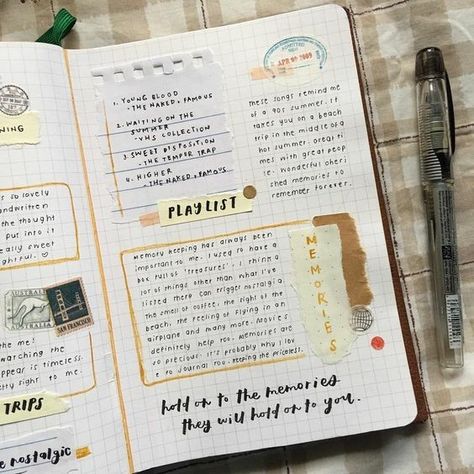 NING
s so lovely
andwritten
the thought
put into it
eally sweet
ght of me.
AUSTRALIA
SAN FRANCISCO
the me!
watching the
appear is timeless.
etty sight to me.
TRIPS
e nostalgic
1. YOUNG BLOOD
- THE NAKED & FAMOUS
2. WAITING ON THE
SUMMER
- VHS COLLECTION
3. SWEET DISPOSITION
- THE TEMPER TRAP
4. HIGHER
- THE NAKED & FAMOUS
PLAYLIST
ADMITTED
APR 09 2009
These songs remind me
of a 90s summer. It
takes you on a beach
trip in the middle of a
hot summer. Great ti
mes, with great peop
le. Wonderful cheri
shed memories to
remember forever.
Memory keeping has always been
important to me. I used to have a
box full of "treasures". I think a
lot of things other than what I've
listed there can trigger nostalgia.
The smell of coffee, the sight of the
beach, the feeling of flying in an
airplane and many more. Movies
definitely help too. Memories are
so precious. It's probably why I lov
e to journal too. Keeping the priceless.
MEMORIES
hold on to the memories
they will hold on to you.